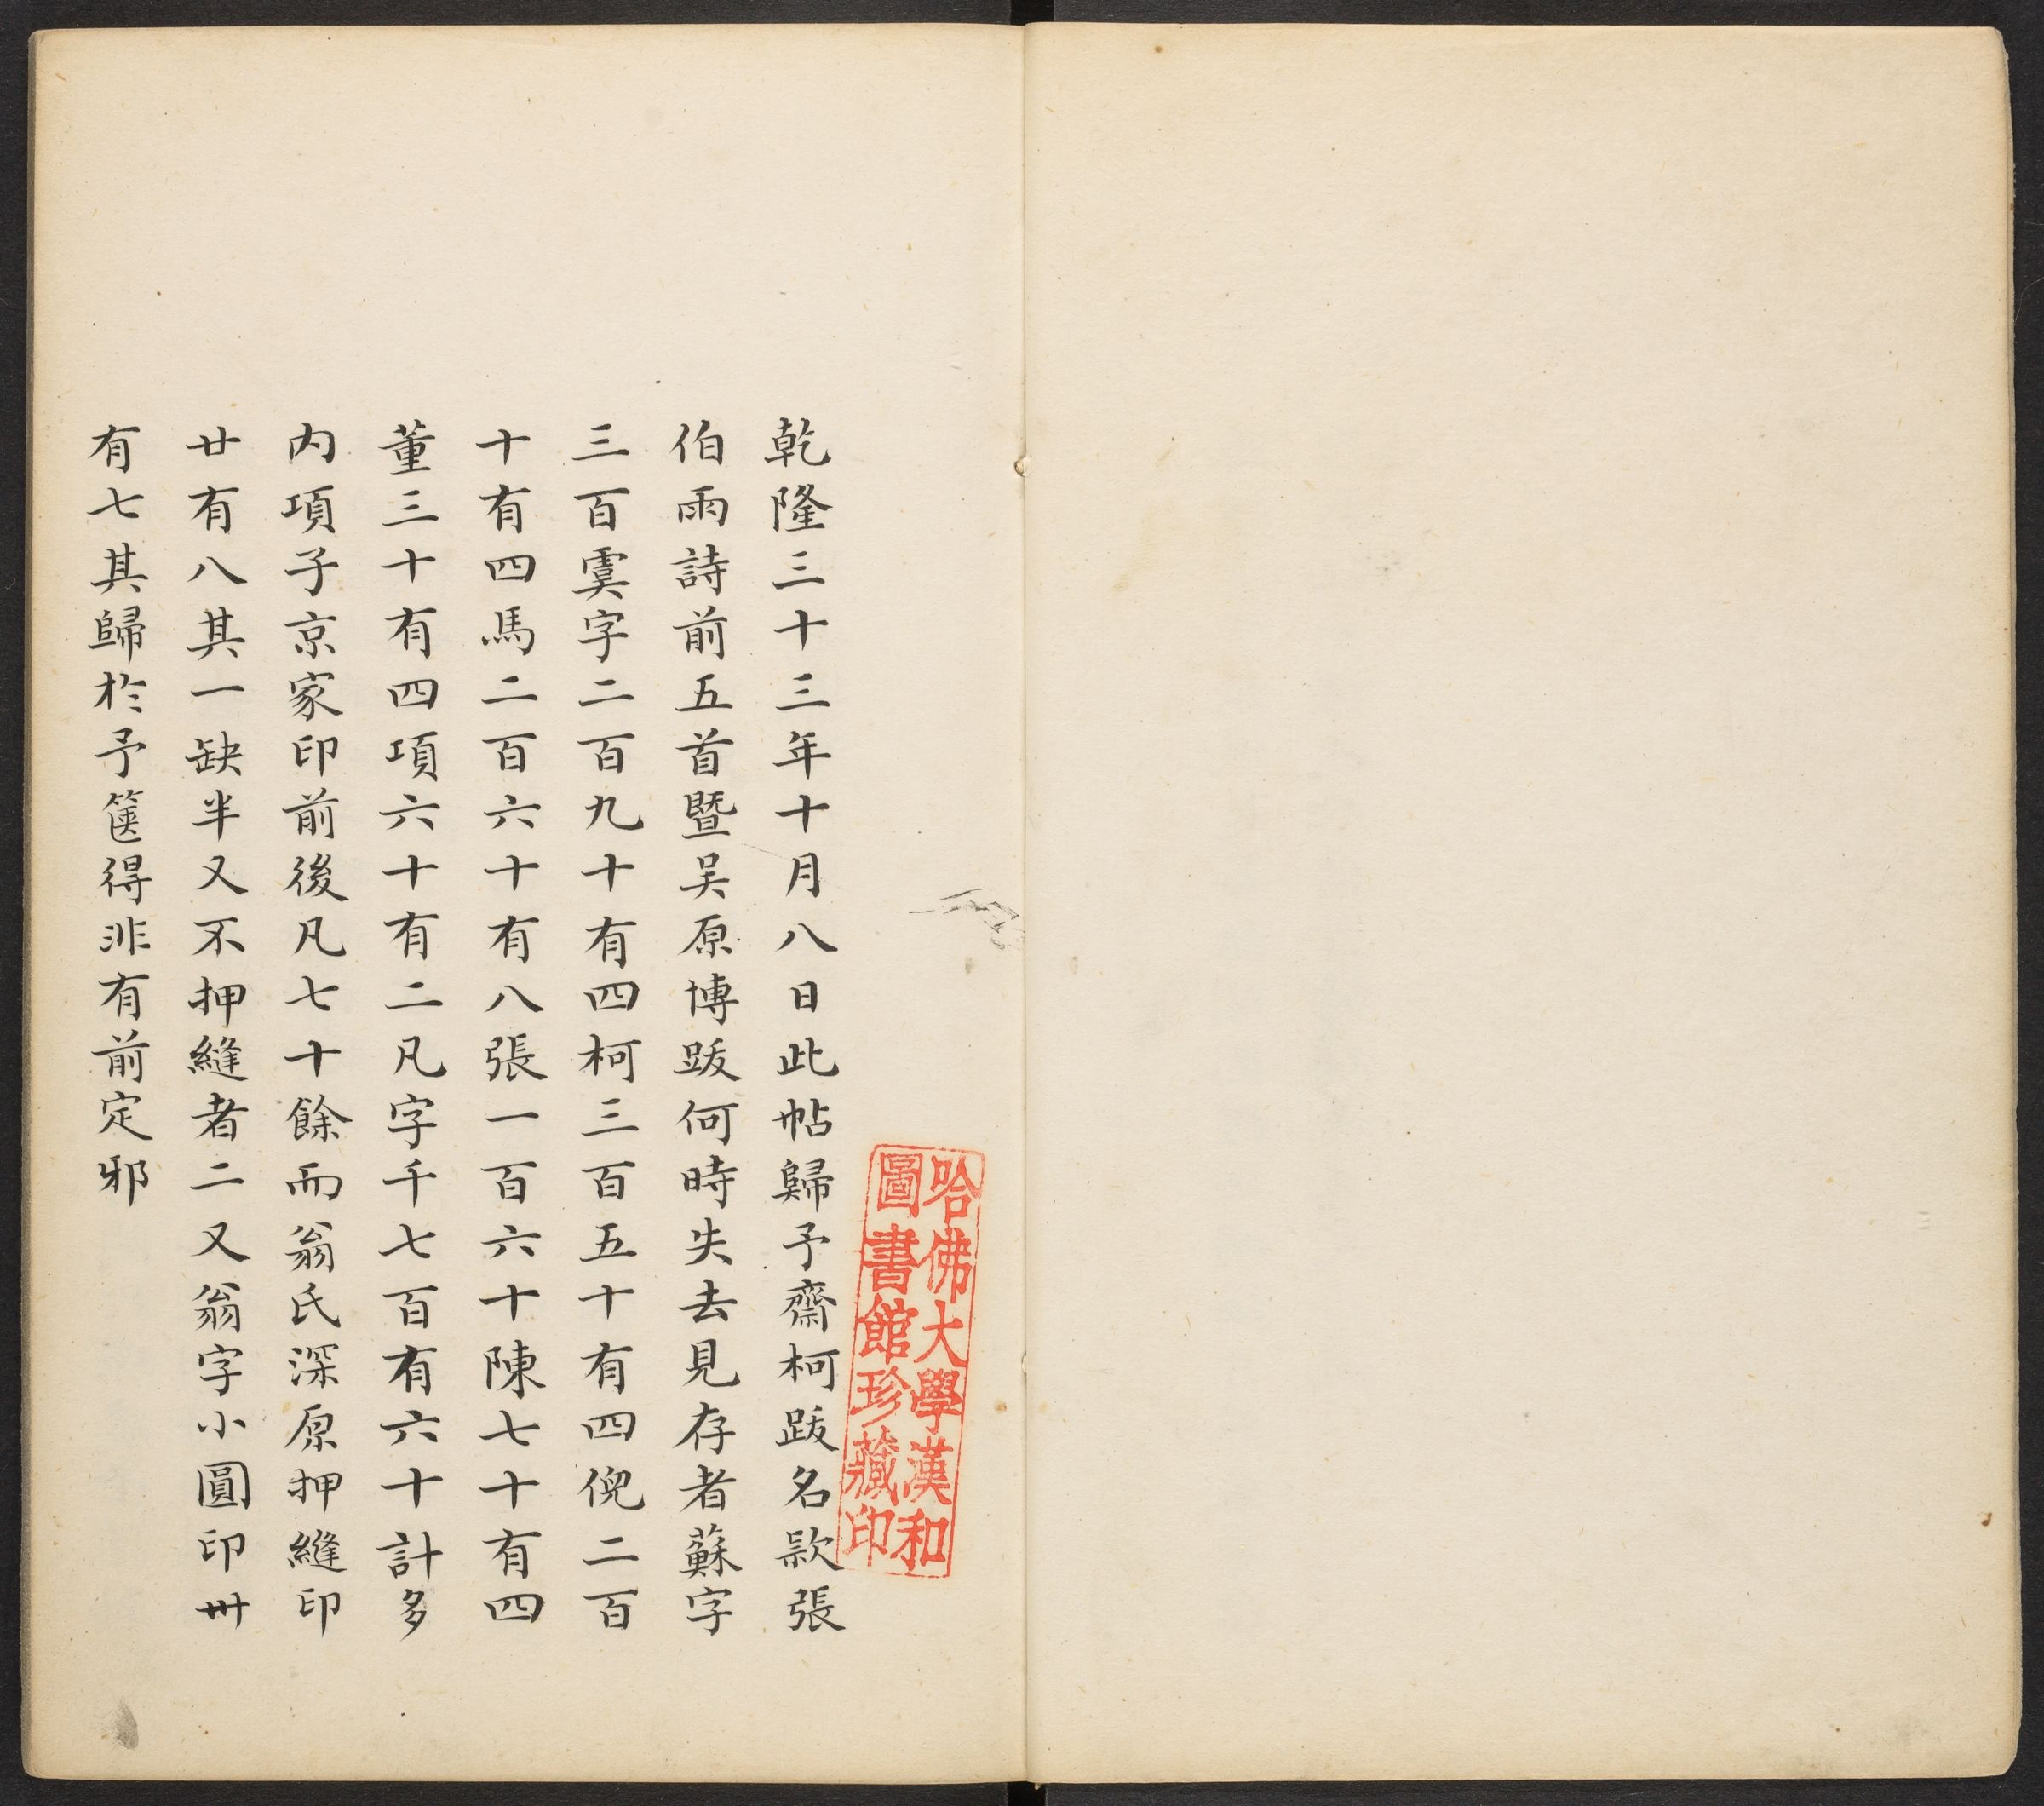 乾隆三十三年十月八日此帖歸予齋柯跋名款張
伯雨詩前五首暨吴原博跋何時失去見存者蘇字
三百虞字二百九十有四柯三百五十有四倪二百
十有四馬二百六十有八張一百六十陳七十有四
董三十有四項六十有二凡字千七百有六十計多
内項子京家印前後凡七十餘而翁氏深原押縫印
廿有八其一缺半又不押縫者二又翁字小圓印卅
有七其歸於予篋得非有前定邪
哈佛大學漢和
圖書館珍藏印